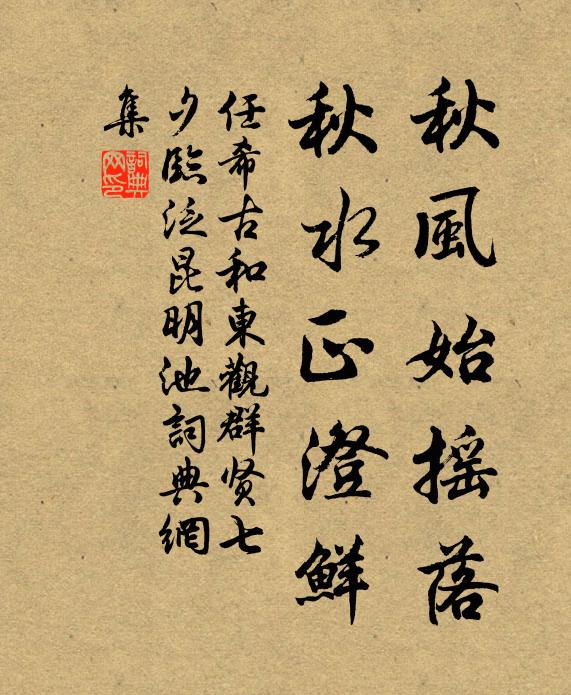 秋風始摇落
秋水正澄鮮
任希古和東觀群贤七
夕臨泛昆明池詞典網
集
詞典
网印